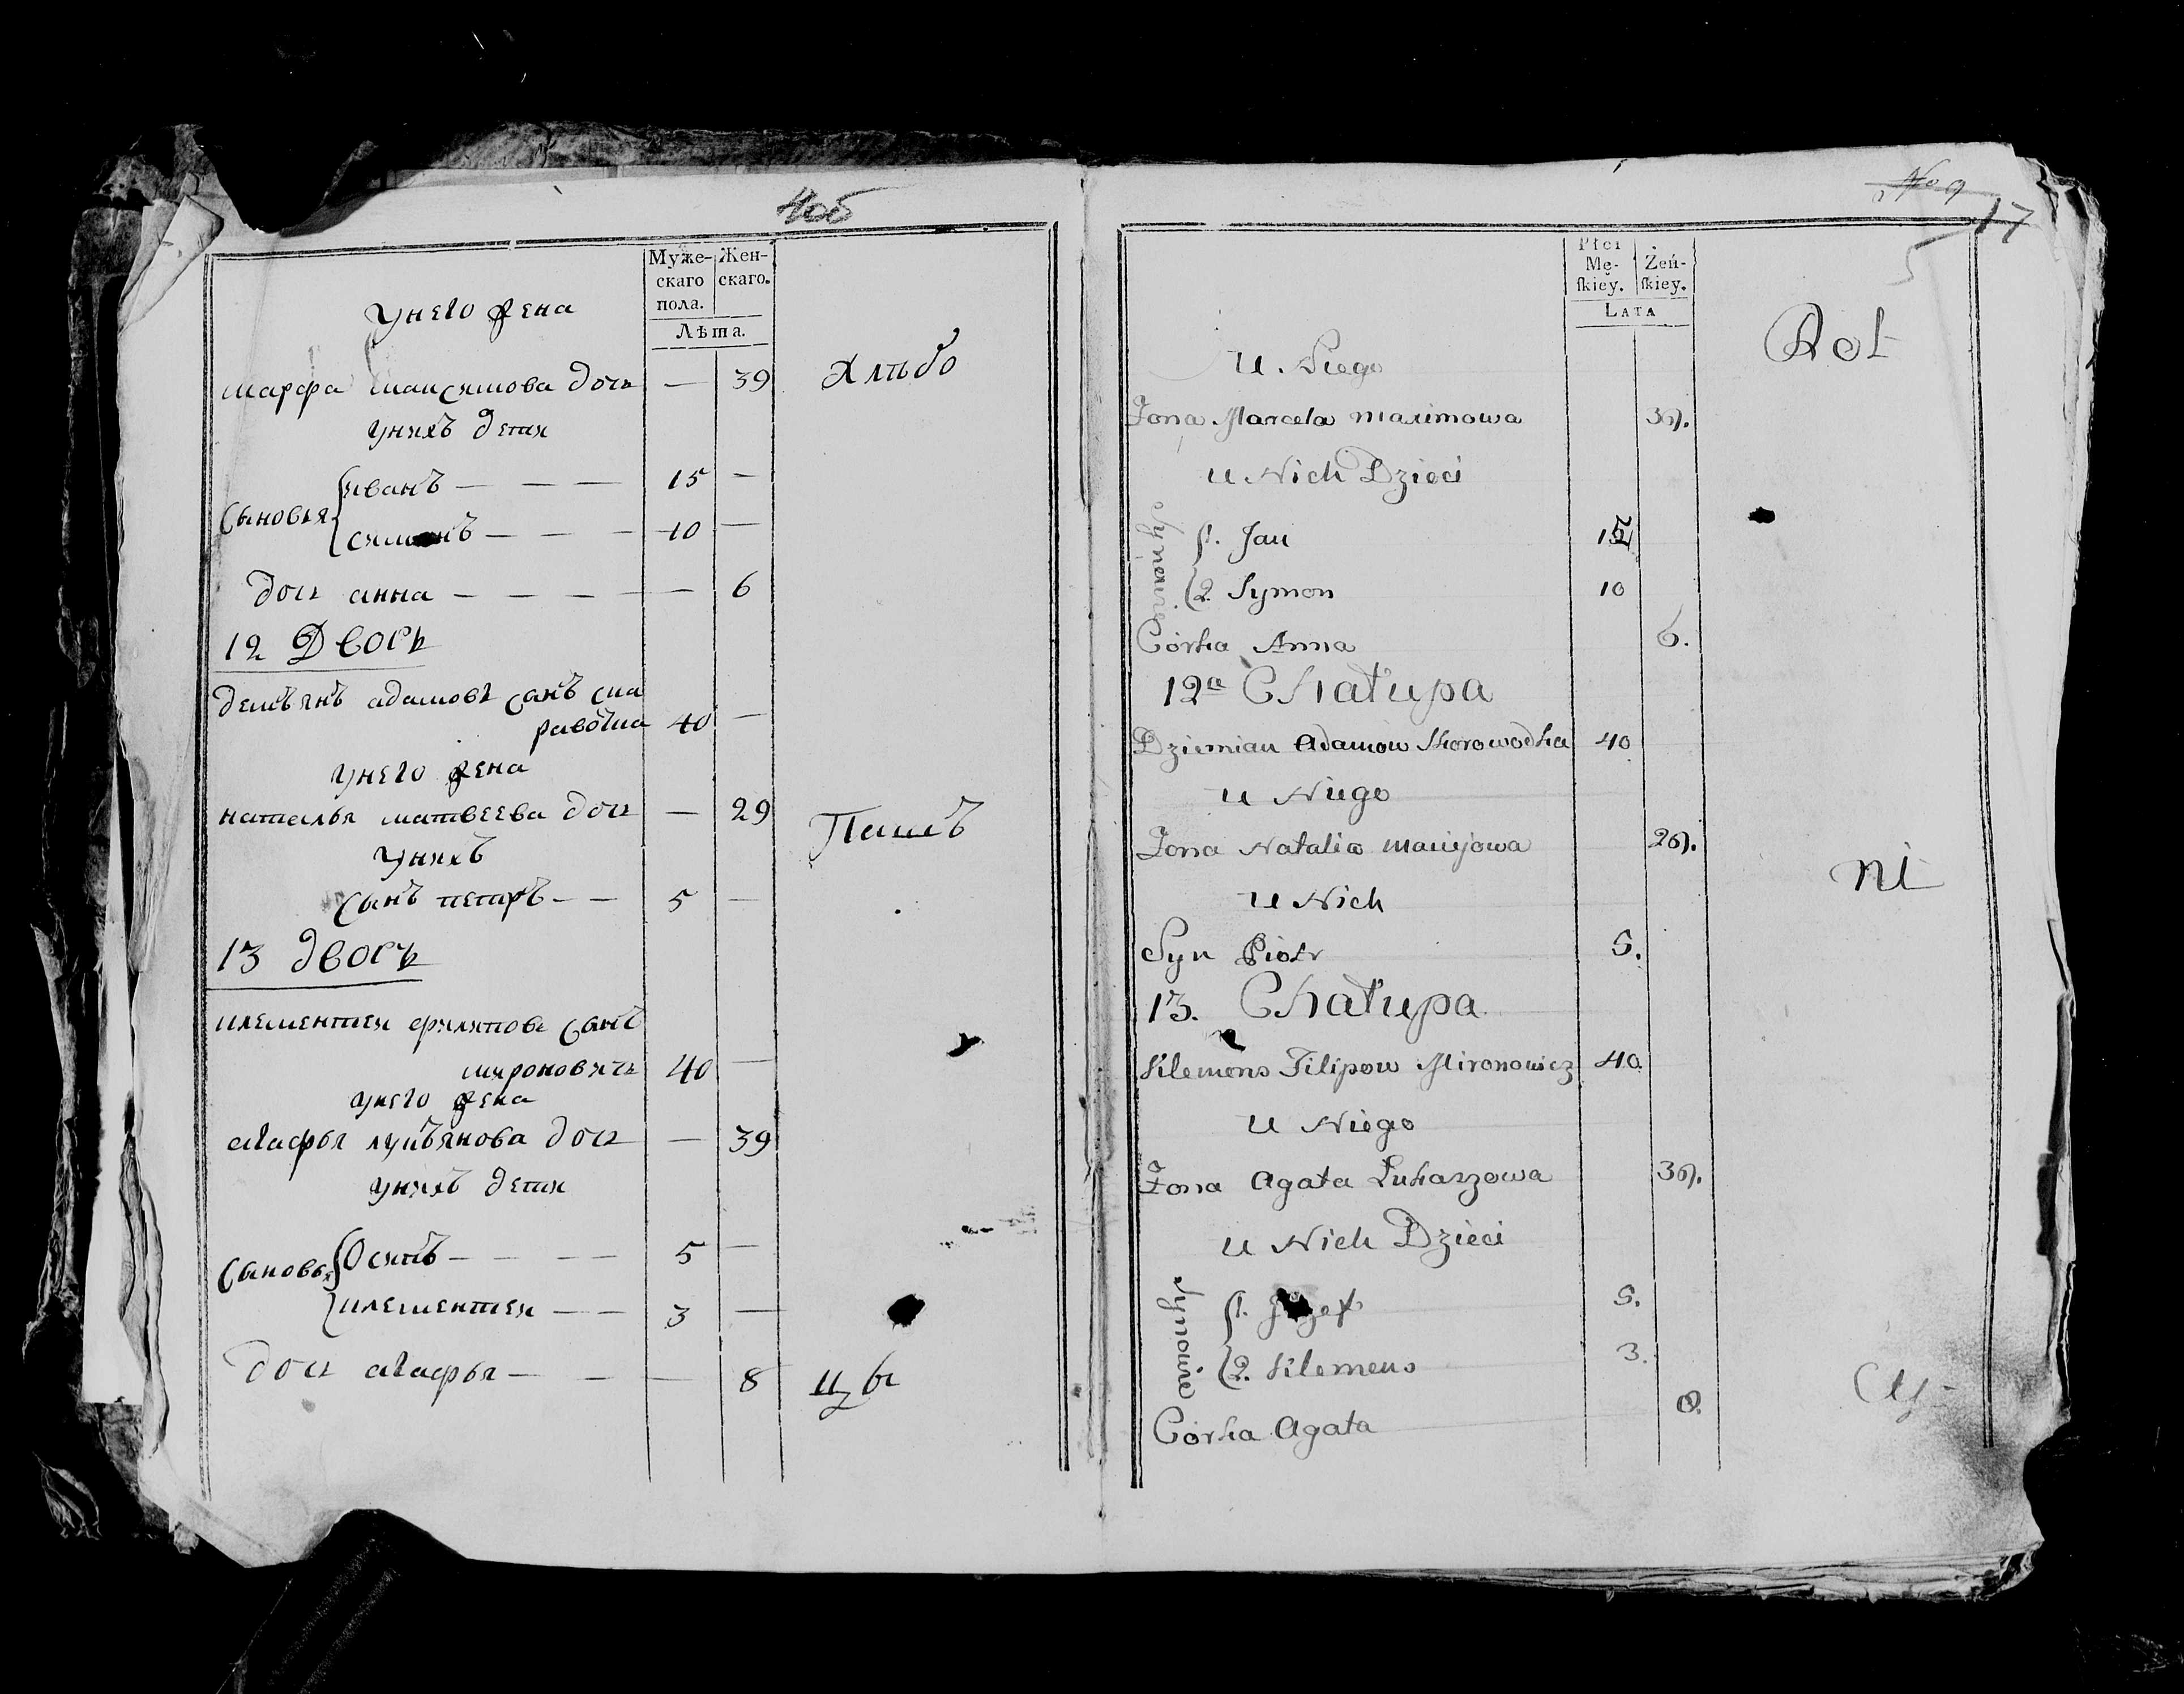 406
Муже-
скаго
пола.
Жен-
скаго.
Лѣта.
унего жена
марфа мансимова дочь — 39
Хлѣбо
унихъ дети
Сыновья
иванъ — — — 15 —
10 —
дочь анна — — — — 6
12 Дворъ
демъянъ адамовъ сынъ ска
равотка 40 —
унего жена
наталья матвеева дочь — 29
Пашъ
унихъ
сынъ петръ — — 5 —
13 дворъ
клементеи филиповъ сынъ
мироновичь 40 —
унего жена
агафья лукъянова дочь — 39
унихъ дети
Сыновья
Осипъ — — — — 5 —
клементеи — — 3 —
дочь агафья — — — 8
цы
No 9
17
5
Płci
Mę-
ſkiey.
Żeń-
ſkiey.
LATA
Rol
U Niego
Zona Marcela Maximowa 39.
U Nich Dzieci
Synowie
1. Jan 15
2. Symon 10
Córka Anna 6.
12a Chałupa
Dziemian Adamow Skorowodka 40
U Niego
Zona Natalia Maciejowa 29.
ni
U Nich
Syn Piotr 5.
13. Chałupa
Klemens Filipow Mironowicz 40
U Niego
Zona Agata Łukaszowa 39.
U Nich Dzieci
Synowie
1. Jozef 5.
2. Klemens 3.
Córka Agata 8.
cy